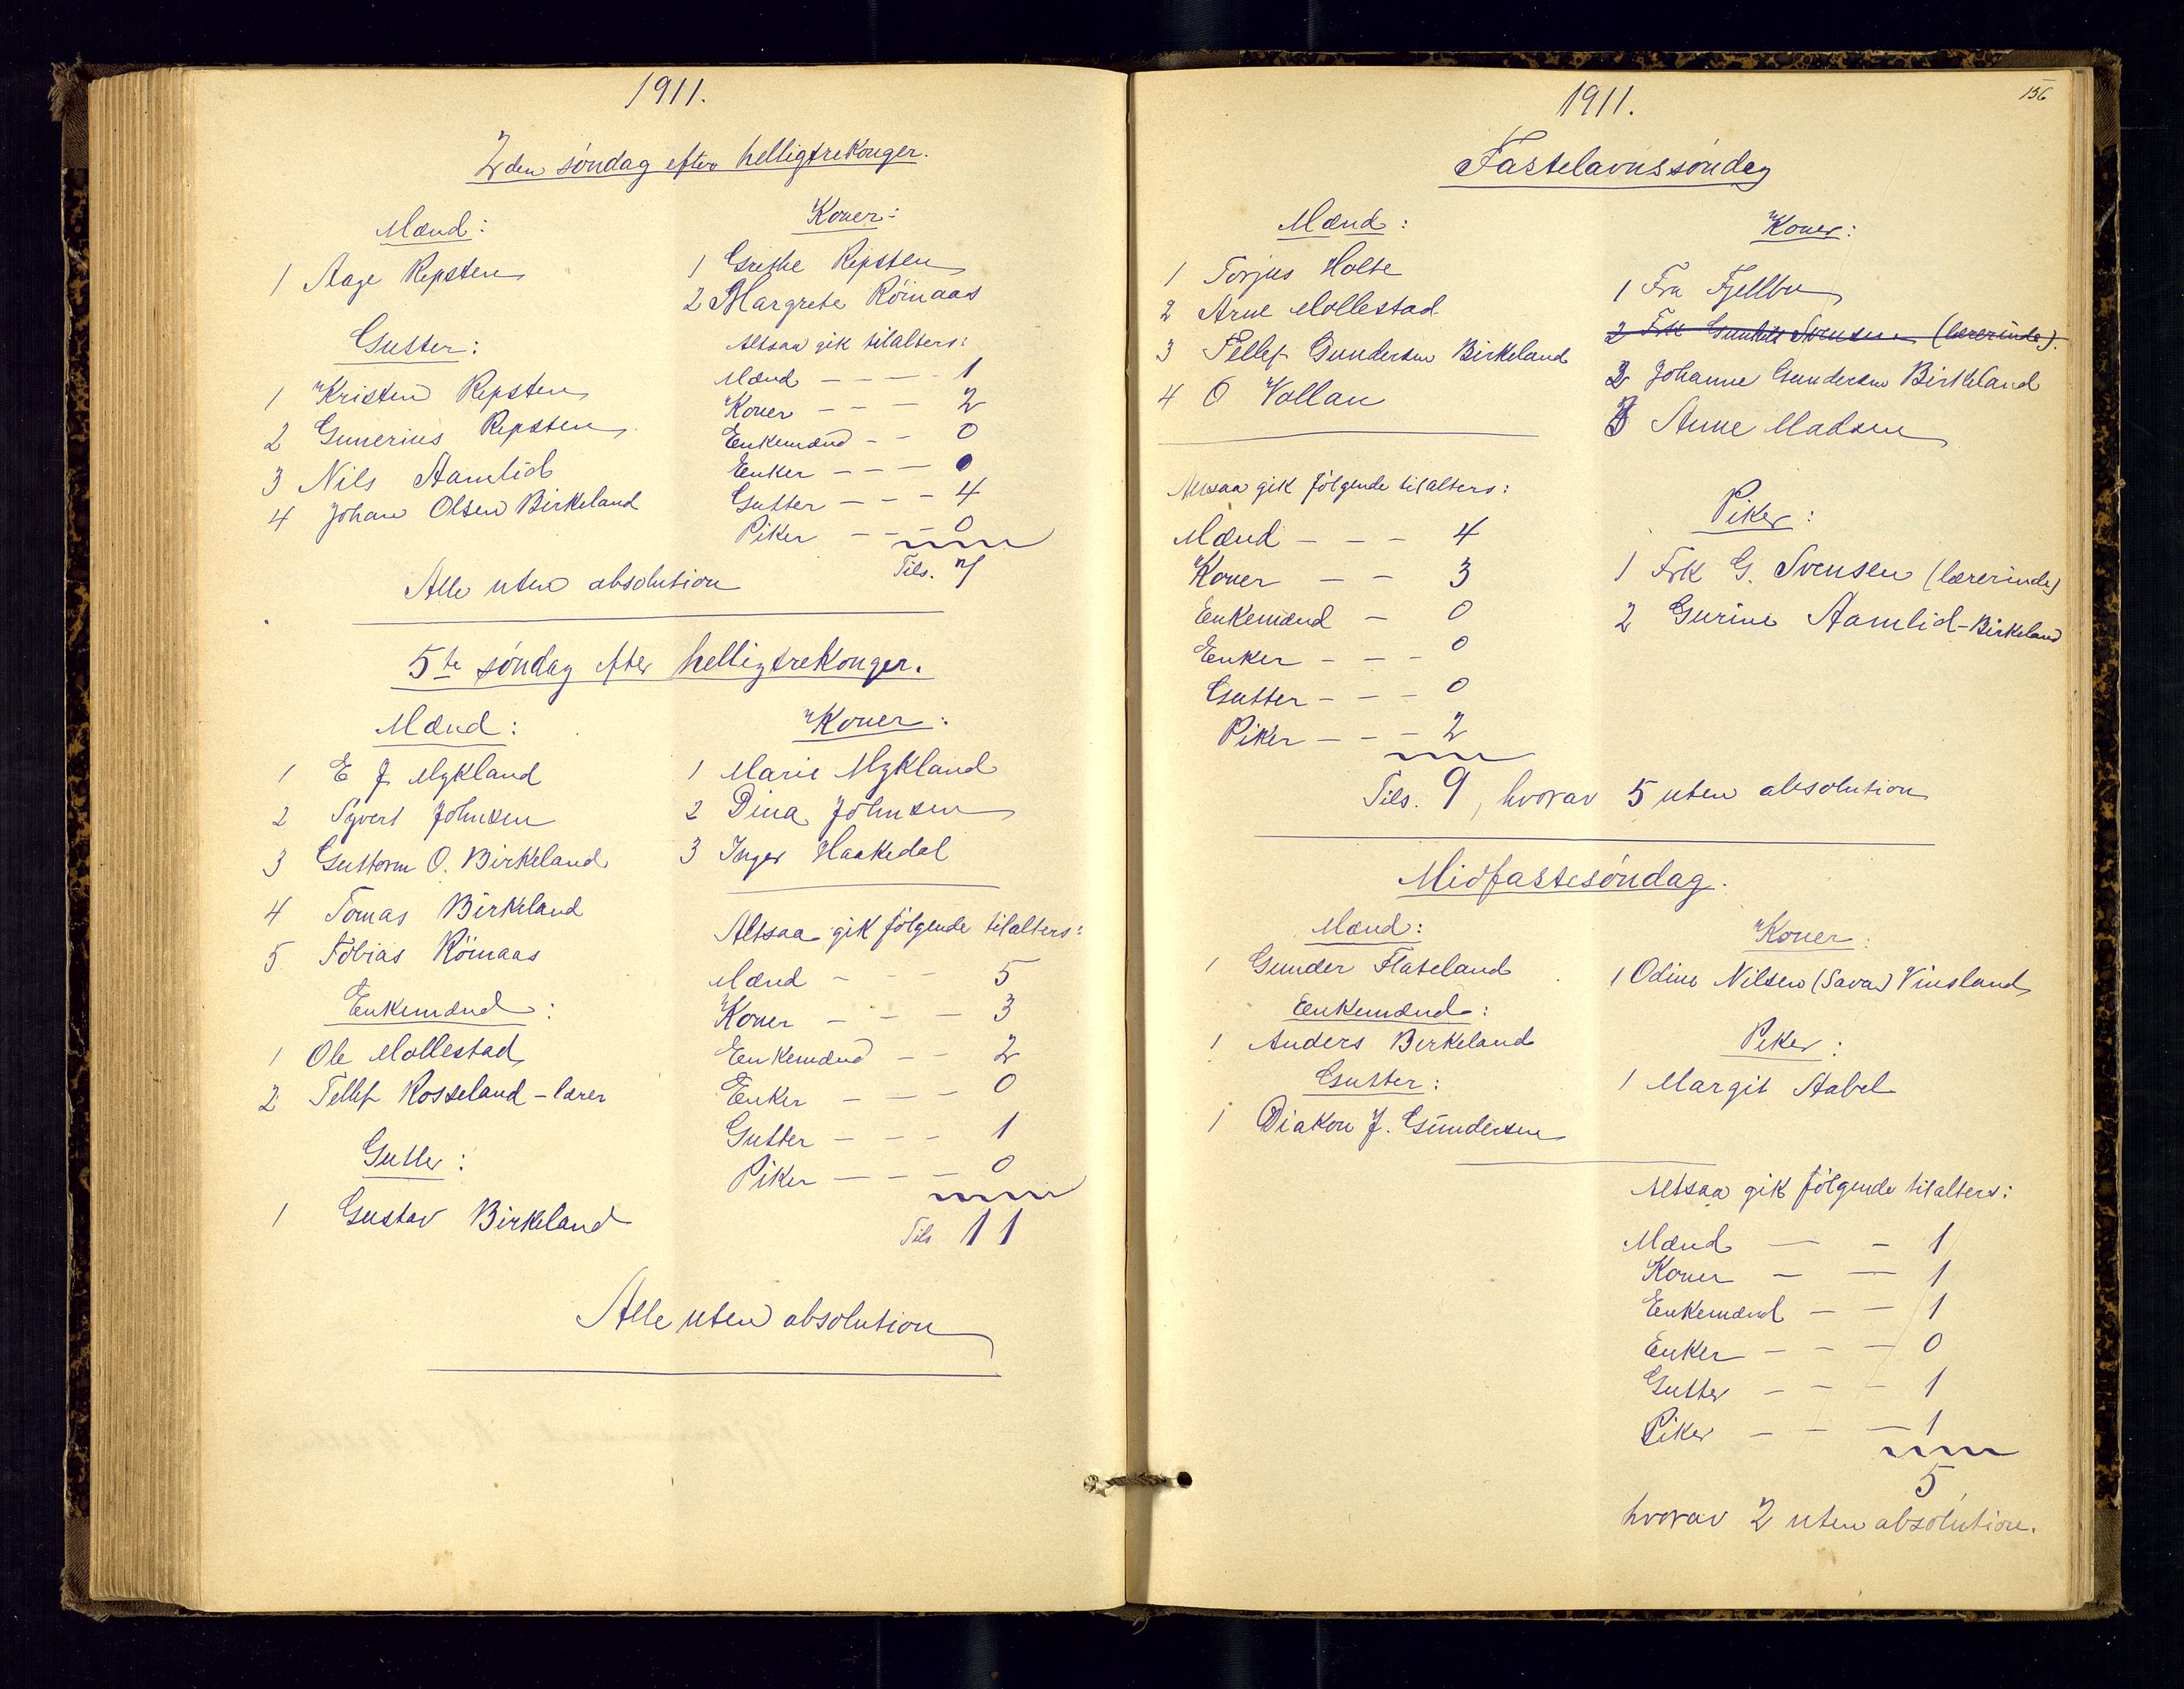 1911.
2den søndag efter helligtrekonger.
Mænd:
1 Aage Repsten
Gutter:
1 Kristen Repsten
2 Gunerius Repsten
3 Nils Aamlid
4 Johan Olsen Birkeland
Koner:
1 Grethe Repsten
2 Margrete Röinaas
Altsaa gik tilalters:
Mænd - - - - 1
Koner - - - 2
Enkemænd - - 0
Enker - - - 0
Gutter - - - 4
Piker - - 0
Tils. 7
Alle uten absolution
5te søndag efter helligtrekonger.
Mænd:
1 E J Mykland
2 Syvert Johnsen
3 Guttorm O. Birkeland
4 Tomas Birkeland
5 Tobias Röinaas
Enkemænd:
1 Ole Mollestad
2 Tellef Rosseland - lærer
Gutter:
1 Gustav Birkeland
Koner:
1 Marie Mykland
2 Dina Johnsen
3 Inger Haakedal
Altsaa gik følgende tilalters:
Mænd - - - 5
Koner - - - 3
Enkemænd - - 2
Enker - - - 0
Gutter - - - 1
Piker - - - 0
Tils 11
Alle uten absolution
156
1911.
Fastelavnssøndag
Mænd:
1 Torjus Holte
2 Arne Mollestad
3 Tellef Gundersen Birkeland
4 O Vollan
Koner:
1 Fru Fjellbu
2 Frk Gunhild Svensen (lærerinde).
2 Johanne Gundersen Birkeland
3 Anne Madsen
Altsaa gik følgende tilalters:
Mænd - - - 4
Koner - - 3
Enkemænd - 0
Enker - - - 0
Gutter - - - 0
Piker - - - 2
Tils. 9, hvorav 5 uten absolution
Piker:
1 Frk G. Svensen (lærerinde)
2 Gurine Aamlid-Birkeland
Midfastesøndag.
Mænd:
1 Gunder Flateland
Enkemænd:
1 Anders Birkeland
Gutter:
1 Diakon J. Gundersen
Koner:
1 Odine Nilsen (Sava) Vinsland
Piker:
1 Margit Stabel
Altsaa gik følgende tilalters:
Mænd - - 1
Koner - - 1
Enkemænd - - 1
Enker - - - 0
Gutter - - - 1
Piker - - - 1
5
hvorav 2 uten absolution.